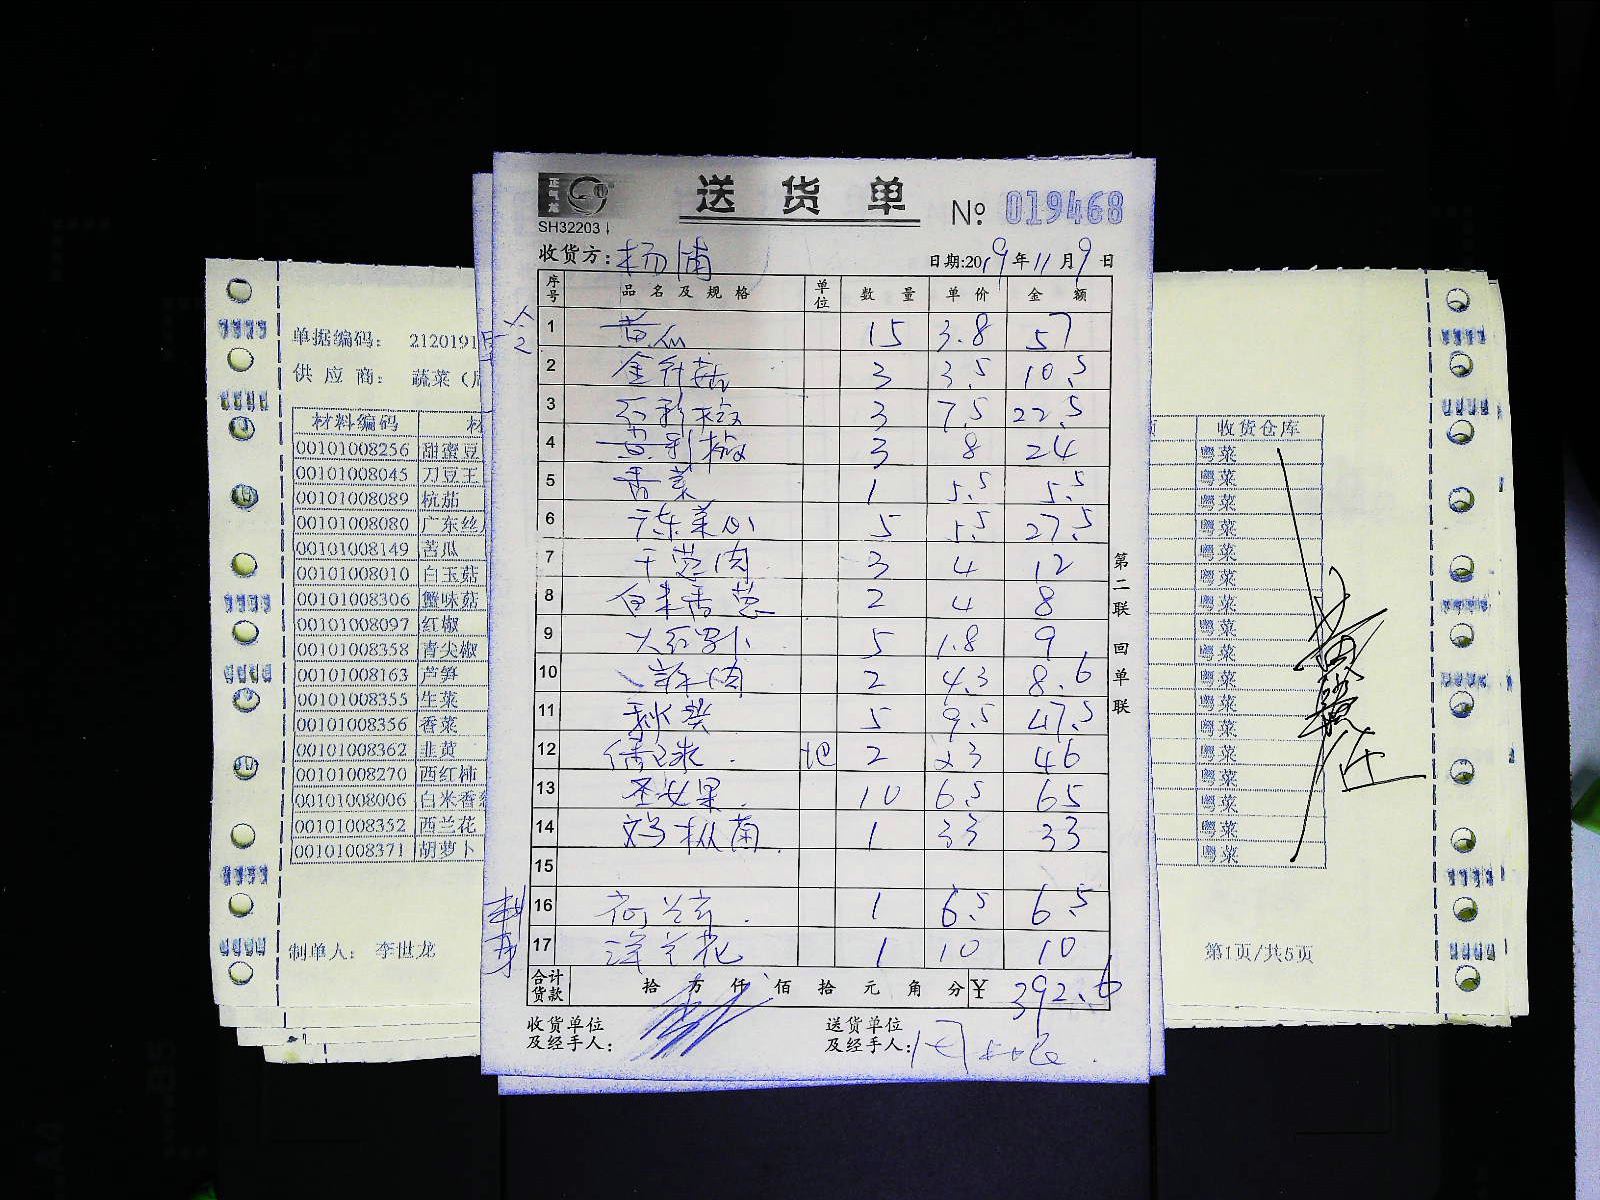 正气龙
送货单
№ 019468
SH32203
收货方:杨浦
日期:2019年11月9日
序号 品名及规格 单位 数量 单价 金额
1 黄瓜 15 3.8 57
2 金针菇 3 3.5 10.5
3 红彩椒 3 7.5 22.5
4 黄彩椒 3 8 24
5 香菜 1 5.5 5.5
6 广东菜心 5 5.5 27.5
7 干葱肉 3 4 12
8 白米香葱 2 4 8
9 5 1.8 9
10 2 4.3 8.6
11 秋葵 5 9.5 47.5
12 2 23 46
13 圣女果 10 6.5 65
14 鸡枞菌 1 33 33
15
16 1 6.5 6.5
17 洋兰花 1 10 10
合计货款 拾 万 仟 佰 拾 元 角 分 ¥ 392.6
收货单位及经手人:
送货单位及经手人:
第二联 回单联
单据编码: 2120191
供应商: 蔬菜
材料编码
00101008256 甜蜜豆
00101008045 刀豆王
00101008089 杭茄
00101008080 广东丝
00101008149 苦瓜
00101008010 白玉菇
00101008306 蟹味菇
00101008097 红椒
00101008358 青尖椒
00101008163 芦笋
00101008355 生菜
00101008356 香菜
00101008362 韭黄
00101008270 西红柿
00101008006 白米香葱
00101008352 西兰花
00101008371 胡萝卜
制单人: 李世龙
收货仓库
粤菜
粤菜
粤菜
粤菜
粤菜
粤菜
粤菜
粤菜
粤菜
粤菜
粤菜
粤菜
粤菜
粤菜
粤菜
粤菜
粤菜
第1页/共5页